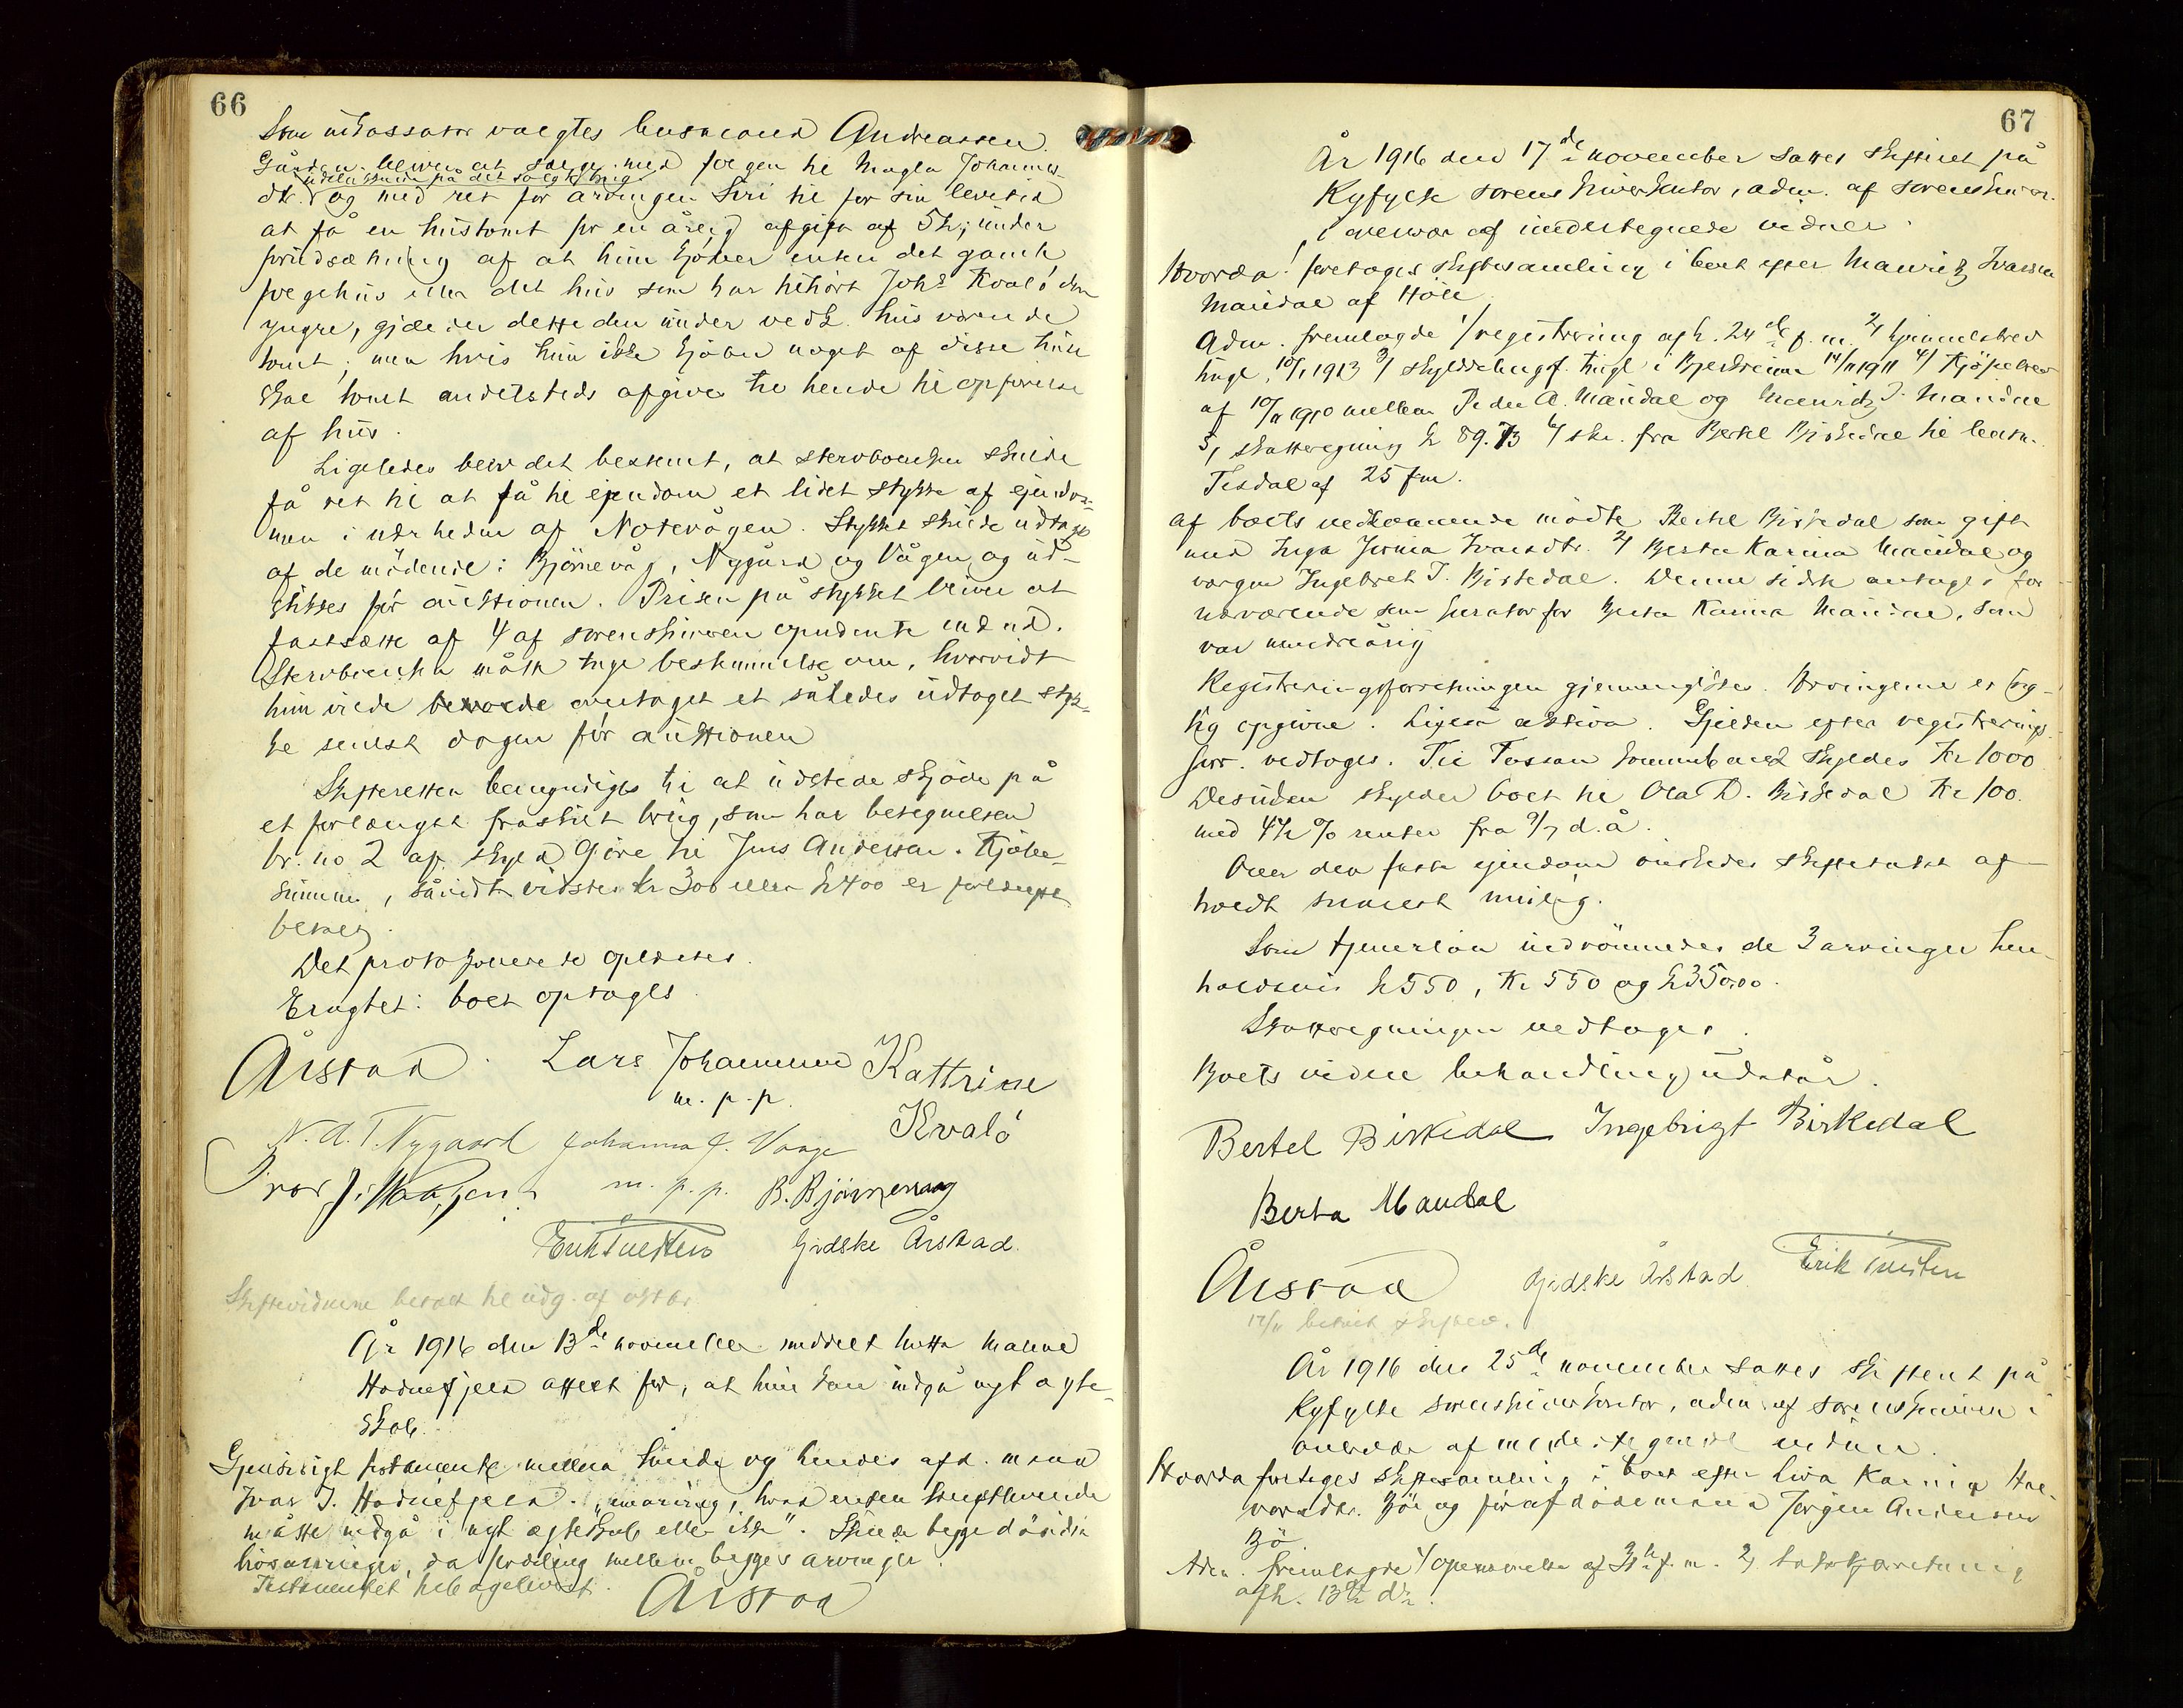 66
Som inkassator valgtes lensmand Andreassen.
Gården bliver at sælge med føgen til Magla Johannes-
udelukkende på det solgte brug
dtr. og med ret for arvingen Siri til for sin levetid
at få en hustomt for en årlig afgift af 5 kr, under
forudsætning af at hun kjøber enten det gamle
føgehus eller det hus som har tilhørt Johs Kvalø den
yngre, gjælder dette den under vedk. hus værende
tomt; men hvis hun ikke kjøber noget af disse huse
skal tomt andetsteds afgives til hende til opførelse
af hus.
Ligeledes blev det bestemt, at stervboenken skulde
få ret til at få til eiendom et lidet stykke af eiendom-
men i nærheden af Notevågen. Stykket skulde udtages
af de mødende: Bjørnevåg, Nygård og Vågen og ud-
skiftes før auktionen. Prisen på stykket bliver at
fastsætte af 4 af sorenskriveren opnævnte mænd.
Stervboenken måtte tage bestemmelse om, hvorvidt
hun vilde overtaget et således udtaget styk-
ke senest dagen før auktionen
Skifteretten bemyndiges til at udstede skjøde på
et forlængst fraskilt brug, som har betegnelsen
br. no 2 af skyld 9 øre til Jens Andersen. Kjøbe-
summen, såvidt vides kr 300 eller kr 400 er forlængst
betalt.
Det protokollerede oplæstes.
Eragtet: boet optages
Årstad Lars Johannesen Kattrine
m. p. p. Kvalø
N. A. T. Nygaard Johanna J. Vaage
Ivar J. Haaland m. p. p. B. Bjørnevaag
Erik Tuesten Gjedske Årstad.
Skiftevidnene betalt til udg. af
År 1916 den 13de november meddelt Malene
Hodnefjeld attest for, at hun kan indgå nyt ægte-
skab.
Gjensidigt testamente mellem hende og hendes afd. mand
Ivar I. Hodnefjeld. hvad enten længstlevende
måtte indgå i nyt ægteskab eller ikke". Skulde begge dø uden
livsarvinger, da fordeling mellem begges arvinger.
Testamentet tilbageleveret. Årstad
67
År 1916 den 17de november sattes skifteret på
Ryfylke sorenskriverkontor, adm. af sorenskriveren
i overvær af undertegnede vidner.
Hvorda: foretoges skiftesamling i boet efter Mauritz Ivarsen
Maudal af Høle
Adm. fremlagde 1/ registrering afh. 24de f. m. 2/ hjemmelsbrev
tingl. 10/1 1913 3/ skylddelingsf. tingl i Bjerkreim 14/11 1911 4/ Kjøpebrev
af 10/11 1910 mellem Peder A. Maudal og Mauritz I. Maudal
5/ skatteregning kr 89.73 6/ skr. fra Bertel Birkedal til lensm.
Tesdal af 25 f.m.
af boets vedkommende mødte Bertel Birkedal som gift
med Inga Jorina Ivarsdtr. 2/ Berta Karina Maudal og
værgen Ingebret T. Birkedal. Denne sidste antages for
nærværende som kurator for Berta Karina Maudal, som
var mindreårig
Registreringsforretningen gjennemgikkes. Arvingerne er rig-
tig opgivne. Ligeså aktiva. Gjelden efter registrerings-
forr. vedtoges. Til Fossan kommune skyldes Kr 1000
Desuden skylder boet til Ola D. Birkedal Kr 100.
med 4½ % renter fra 9/7 d.å.
Over den faste eiendom ønskedes skiftetakst af-
holdt snarest mulig.
Som tjenerløn indrømmedes de 3 arvinger hen-
holdsvis kr 550, Kr 550 og kr 350.00.
Skatteregningen vedtoges.
Boets videre behandling udstår.
Bertel Birkedal Ingebrigt Birkedal
Berta Maudal
Årstad Gjedske Årstad Erik Tuesten
17/11 betalt skiftev.
År 1916 den 25de november sattes skifteret på
Ryfylke sorenskriverkontor, adm. af sorenskriveren i
overvær af undertegnede vidner.
Hvorda foretoges skiftesamling i boet efter Liva Karina Hal-
vorsdtr. Bø og før afdøde mand Jørgen Andersen
Bø
Adm. fremlagde 1/ opnævnelse af f. m. 2/ takstforretning
afh. 13de ds.